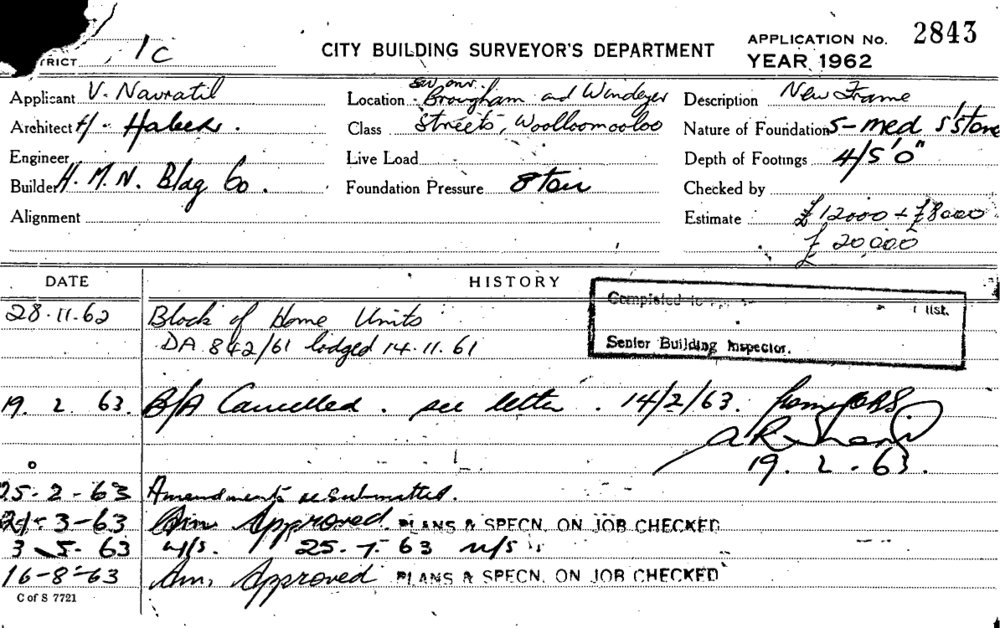 TRICT 1C
CITY BUILDING SURVEYOR'S DEPARTMENT
APPLICATION No. 2843
YEAR 1962
Applicant V. Navratil
Location SW cnr. Brougham and Windeyer
Description New Frame
Architect H.
Class Streets, Woolloomooloo
Nature of Foundation S-med S'stone
Engineer
Live Load
Depth of Footings 4/5'0"
Builder H. M. N. Bldg Co.
Foundation Pressure 8 ton
Checked by
Alignment
Estimate £12000 + £8000
£20000
DATE HISTORY
Completed list.
Senior Building Inspector.
28.11.62 Block of Home Units
DA 842/61 lodged 14.11.61
19. 2. 63. B/A Cancelled. see letter. 14/2/63. from
19. 2. 63.
25-2-63 Amendments resubmitted.
3-63 Am. Approved PLANS & SPECN. ON JOB CHECKED
3-5-63 25-7-63
16-8-63 Am. Approved PLANS & SPECN. ON JOB CHECKED
C of S 7721